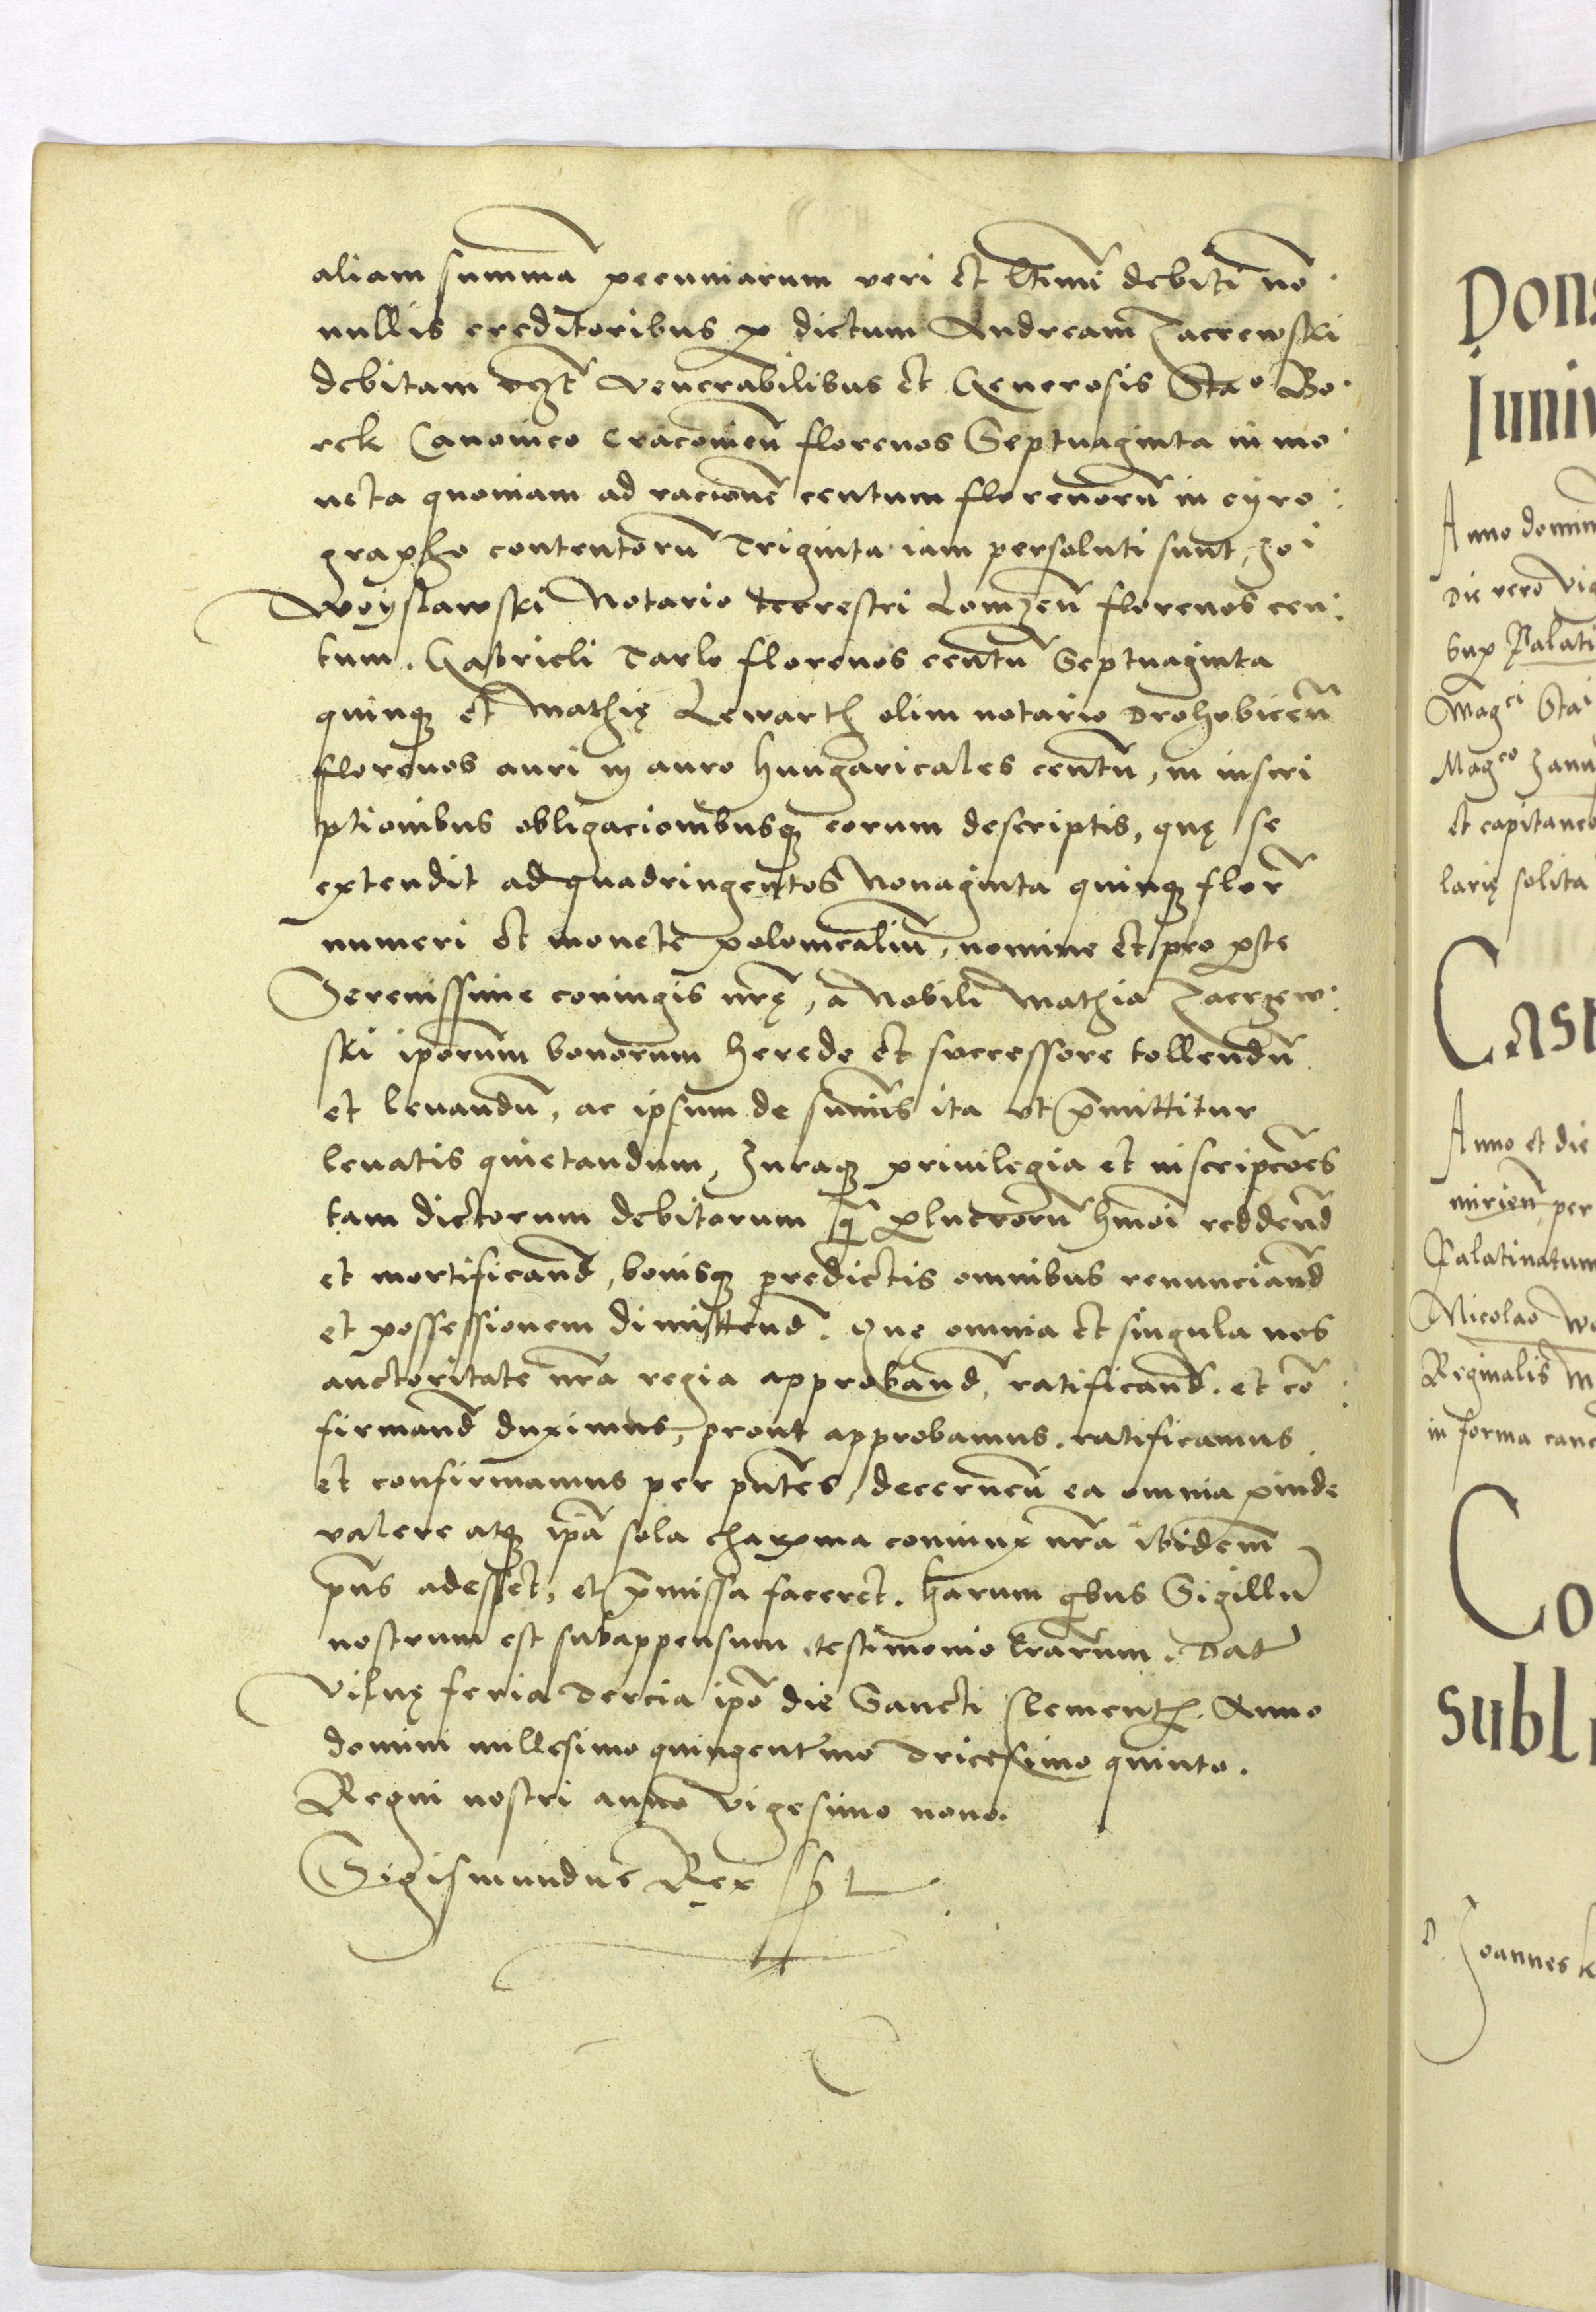 aliam summā pecuniarum veri et ltīmi debiti no
nullis creditoribus p dictum Andream Zacrewski
debitam vczt venerabilibus et Generosis Stao Bo
rek Canonico Cracovien̄ florenos Septuaginta in mo
neta quoniam ad racionē centum florenorū in cyro
grapho contentorū Triginta iam persoluti sunt, Joi
Woyslawski Notario terrestri Lomzen̄ florenos cen
tum. Gabrieli Tarlo florenos centū Septuaginta
quinq et Mathię Lewarth olim notario Drohobicen̄
florenos auri in auro hungaricales centū, in inscri
ptionibus obligacionibusq eorum descriptis, quę se
extendit ad quadringentos Nonaginta quinq florꝭ
numeri et monete polonicaliū, nomine et pro parte
Serenissime coniugis nrę, a Nobili Mathia Zacrzew
ski iporum bonorum herede et successore tollendū
et levandū, ac ipsum de sumis ita ut pmittitur
levatis quietandum, Juraq privilegia et inscripcoēs
tam dictorum debitorum q̄ plucrorū hmoi reddend̄
et mortificand̄, bonisq predictis omnibus renunciand̄
et possessionem dimittend̄. Que omnia et singula nos
auctoritate nrā regia approband̄, ratificand̄. et cō
firmand̄ duximus, prout approbamus. ratificamus
et confirmamus per pntēs, decernen̄ ea omnia pinde
valere atq ipā sola charma coniunx nrā ibidem
pns adesset, et pmissa faceret. Harum qbus Sigillū
nostrum est subappensum testimonio lrarum. Dat
Vilnę feria Tercia ipō die Sancti Clementꝭ. Anno
domini millesimo quingentmo Tricesimo quinto.
Regni nostri anno vigesimo nono.
Sigismundus Rex sst
Anno domin
Die vero vig
sup Palati
Magci Stai
Magco Jann
et capitaneo
larię solita
Anno et die
mirien̄ per
Palatinatum
Nicolao Wo
Reginalis M
in forma canc
Co
subli
D. Joannes K